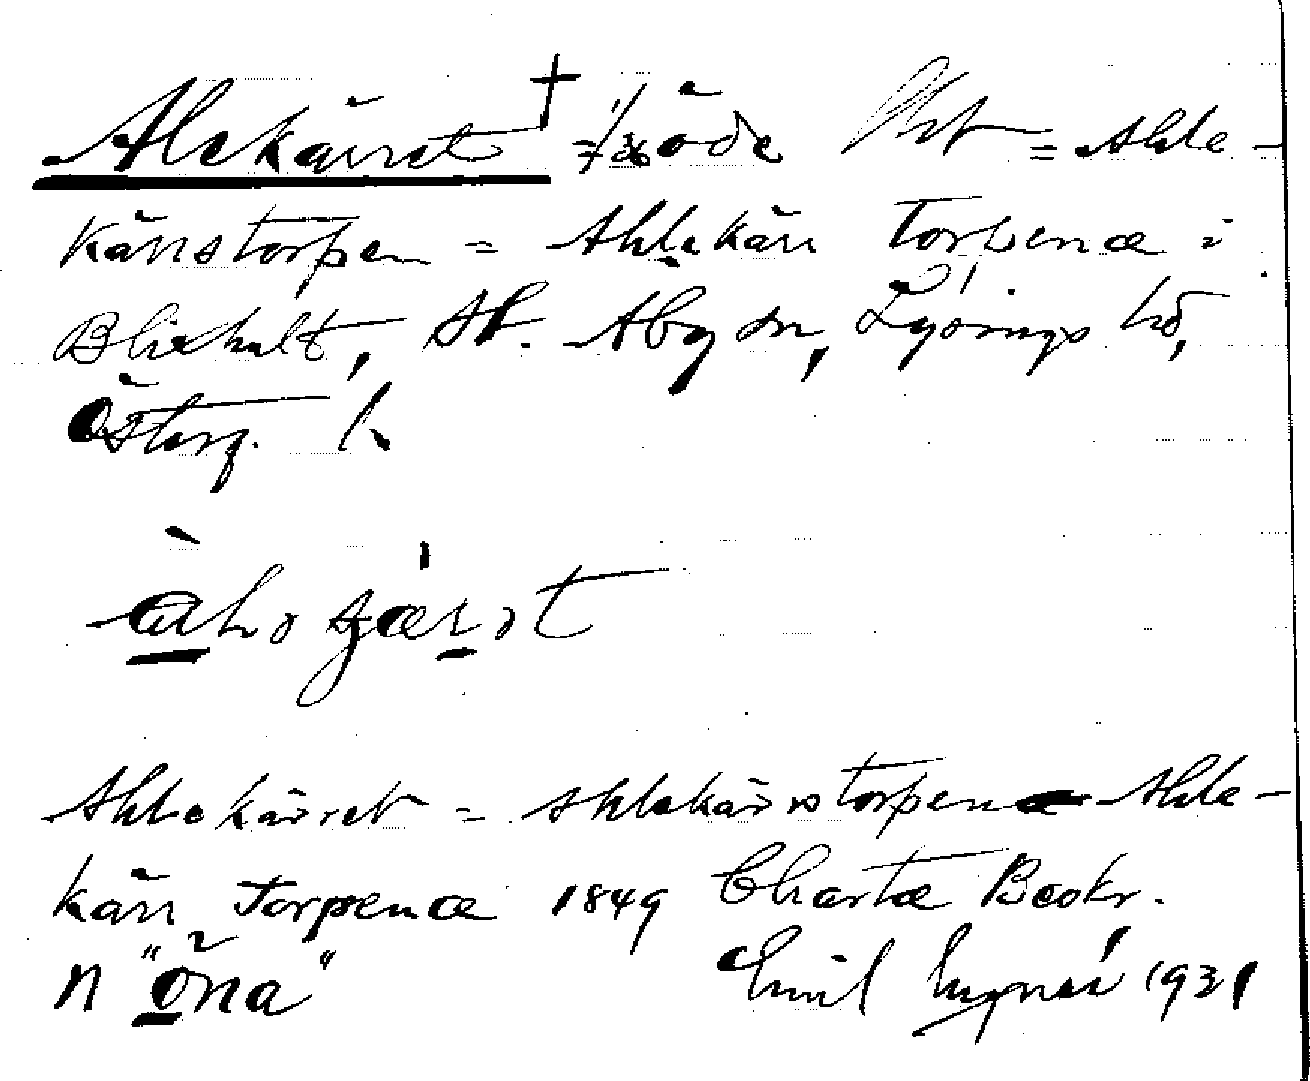 Alekärret † 1/36 öde Ant = Ahle-
kärrstorpen = Ahlekärr Torpena i
Blixhult, St. Åby sn, Lysings hd,
Österg. l.
àlɘɟæ̀rɘt
Ahlekärret = Ahlekärrstorpen Ahle-
kärr Torpena 1849 Charta Beskr.
n "öna" Emil 1931